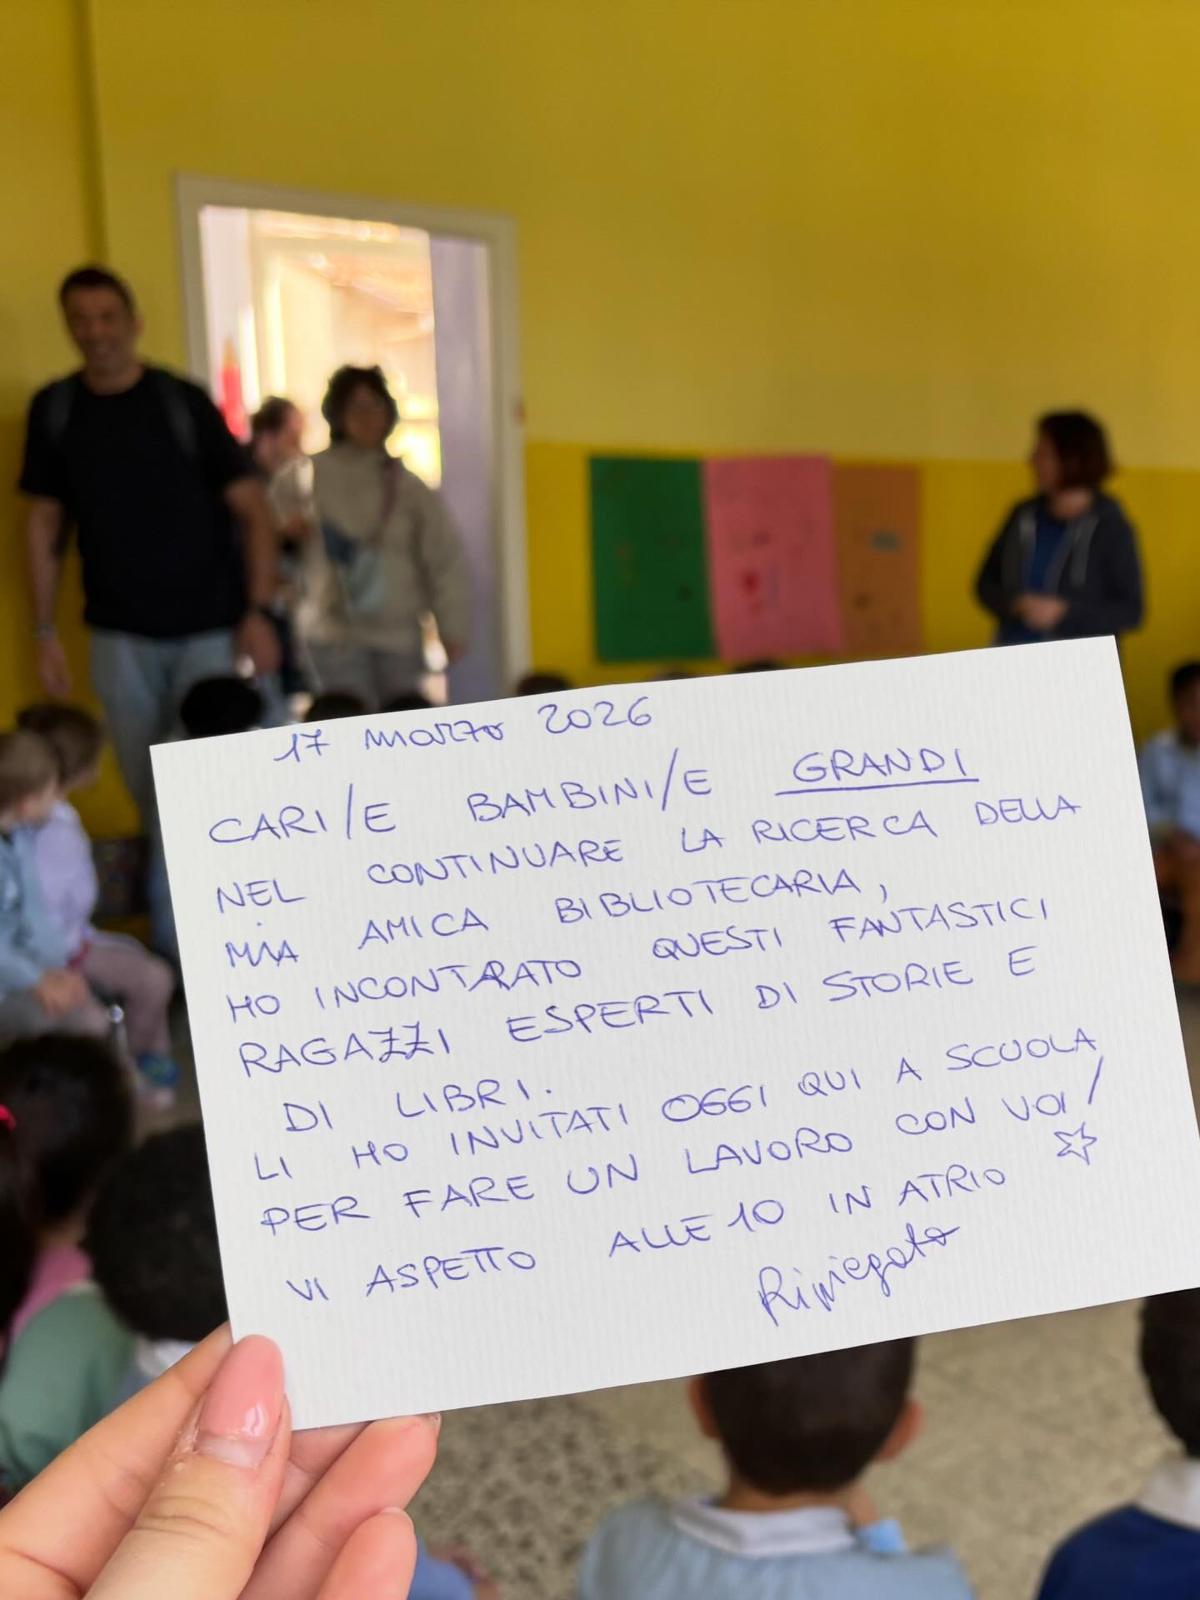 17 marzo 2026
CARI/E BAMBINI/E GRANDI
NEL CONTINUARE LA RICERCA DELLA
MIA AMICA BIBLIOTECARIA,
HO INCONTRATO QUESTI FANTASTICI
RAGAZZI ESPERTI DI STORIE E
DI LIBRI.
LI HO INVITATI OGGI QUI A SCUOLA
PER FARE UN LAVORO CON VOI!
VI ASPETTO ALLE 10 IN ATRIO
Ripiegato